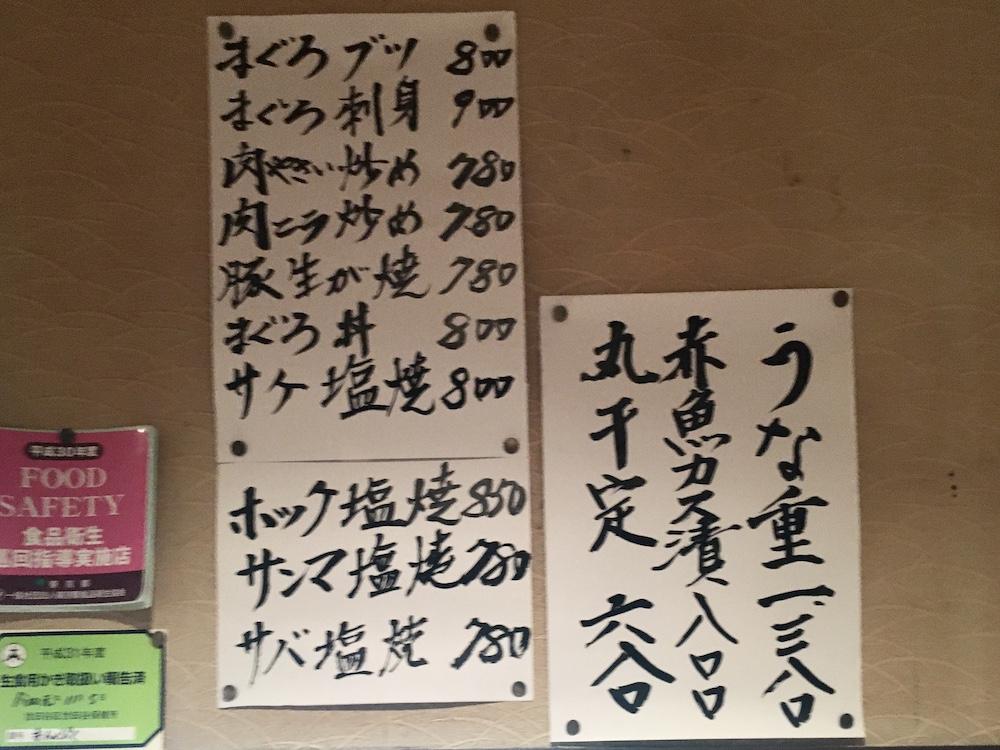 まぐろブツ 800
まぐろ刺身 900
肉やさい炒め 780
肉ニラ炒め 780
豚生が焼 780
まぐろ丼 800
サケ塩焼 800
ホッケ塩焼 850
サンマ塩焼 780
サバ塩焼 780
うな重 一、三八〇
赤魚カス漬 八〇〇
丸干定 六八〇
平成30年度
FOOD
SAFETY
食品衛生
巡回指導実施店
平成31年度
生食用かき取扱い報告済